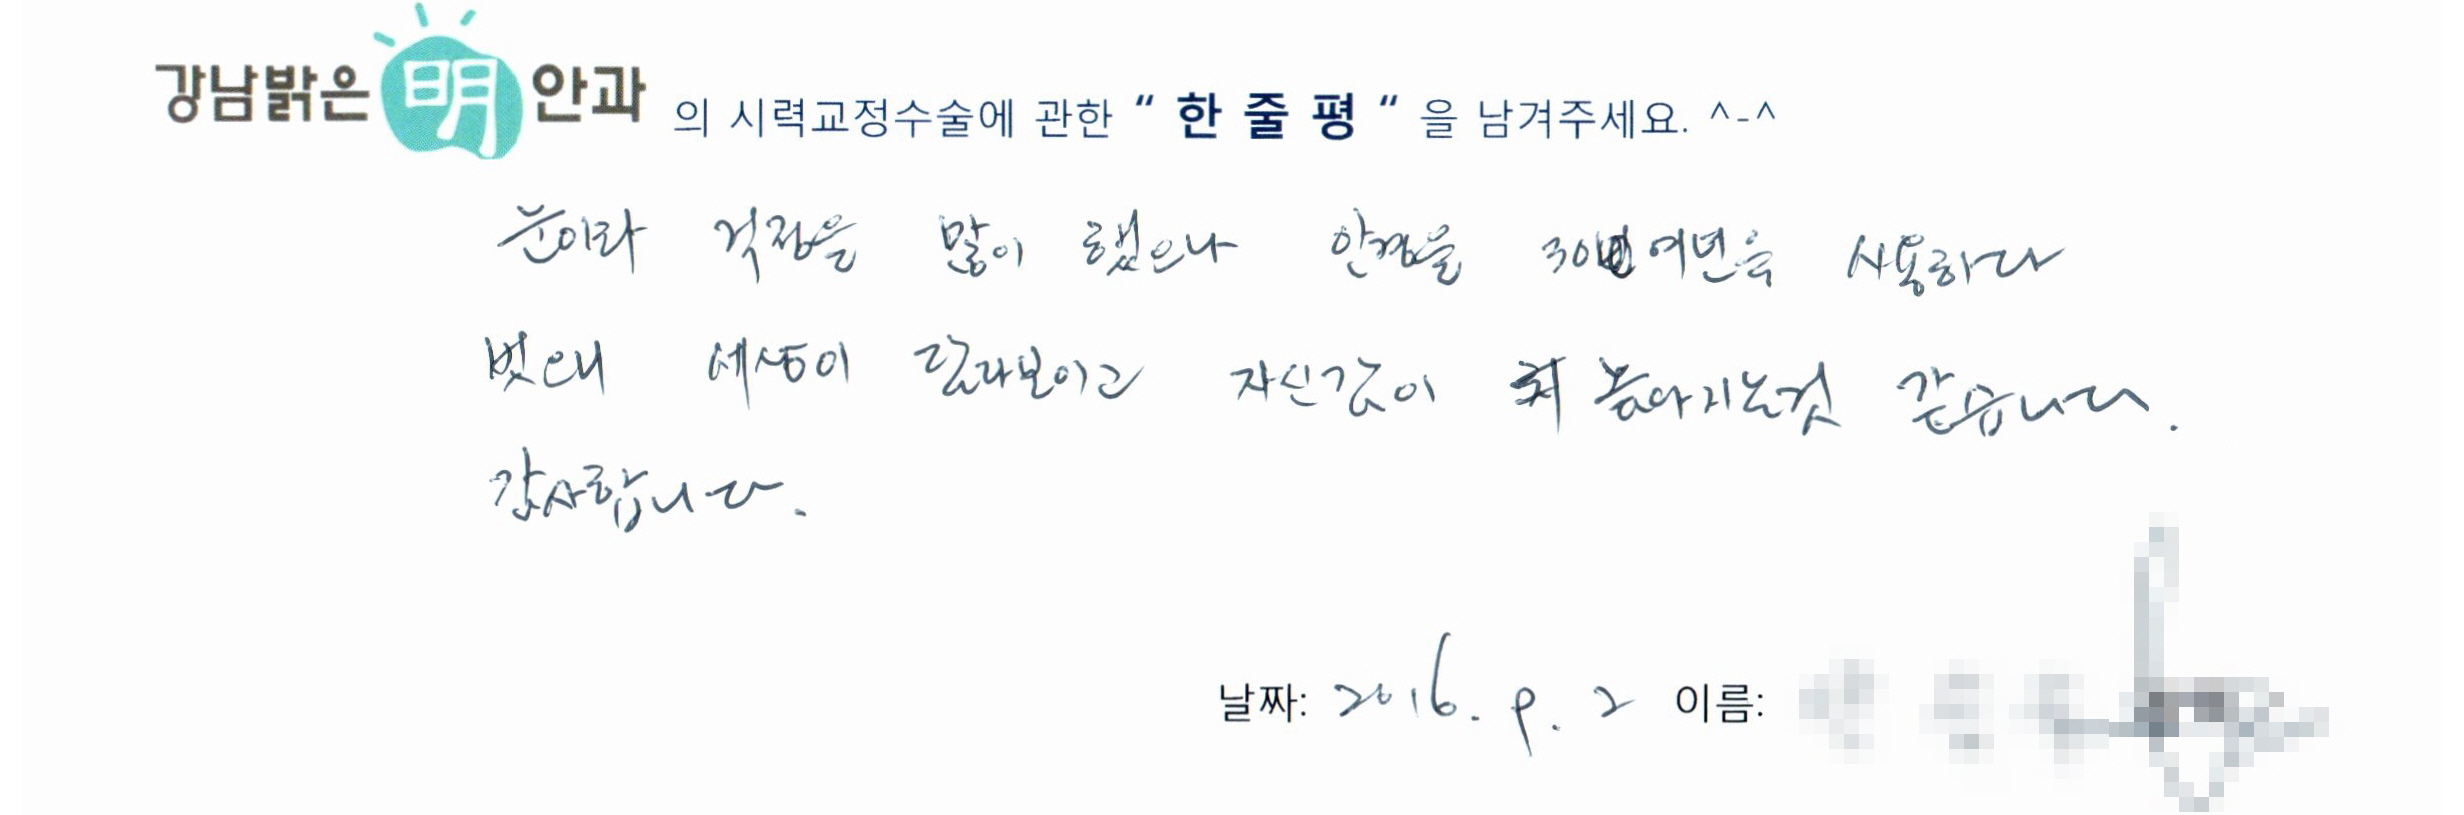 강남밝은明안과 의 시력교정수술에 관한 “ 한 줄 평 “ 을 남겨주세요. ^-^
눈이라 걱정을 많이 했으나 안경을 30여년을 사용하다
벗으매 세상이 달라보이고 자신감이 높아지는것 같습니다.
감사합니다.
날짜: 2016. 9. 2 이름: